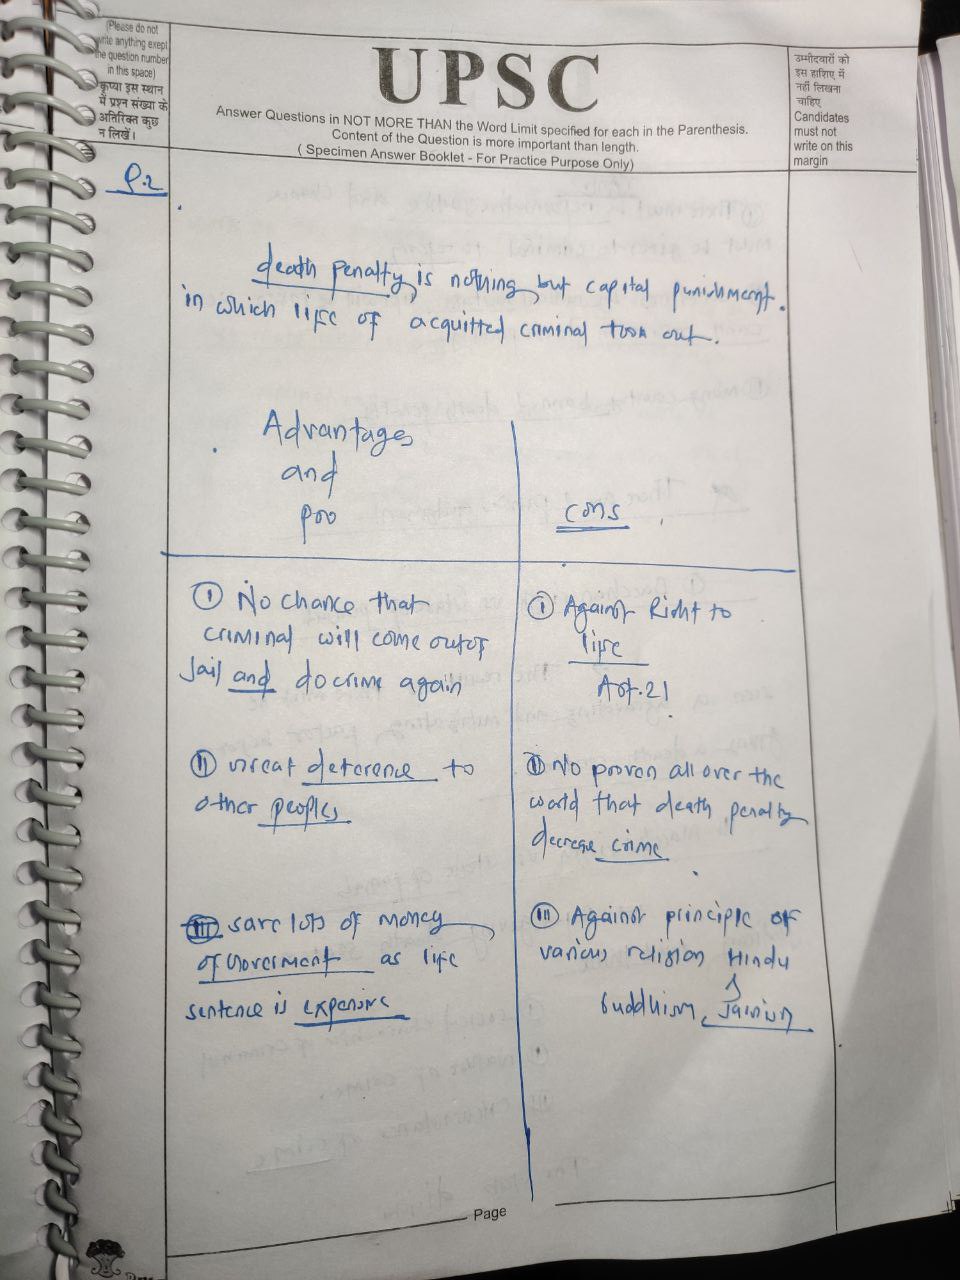 (Please do not
write anything exept
the question number
in this space)
कृप्या इस स्थान
में प्रश्न संख्या के
अतिरिक्त कुछ
न लिखें।
UPSC
Answer Questions in NOT MORE THAN the Word Limit specified for each in the Parenthesis.
Content of the Question is more important than length.
( Specimen Answer Booklet - For Practice Purpose Only)
उम्मीदवारों को
इस हाशिए में
नहीं लिखना
चाहिए
Candidates
must not
write on this
margin
Q.2
death penalty is nothing but capital punishment.
in which life of acquitted criminal took out.
Advantages
and
pro
cons
① No chance that
criminal will come out of
Jail and do crime again
② creat deterence to
other peoples
③ save lots of money
of Goverment as life
sentence is expensive
① Against Right to
life
Art.21
② No proven all over the
world that death penalty
decrease crime
③ Against principle of
various religion Hindu
Buddhism, Jainism
Page